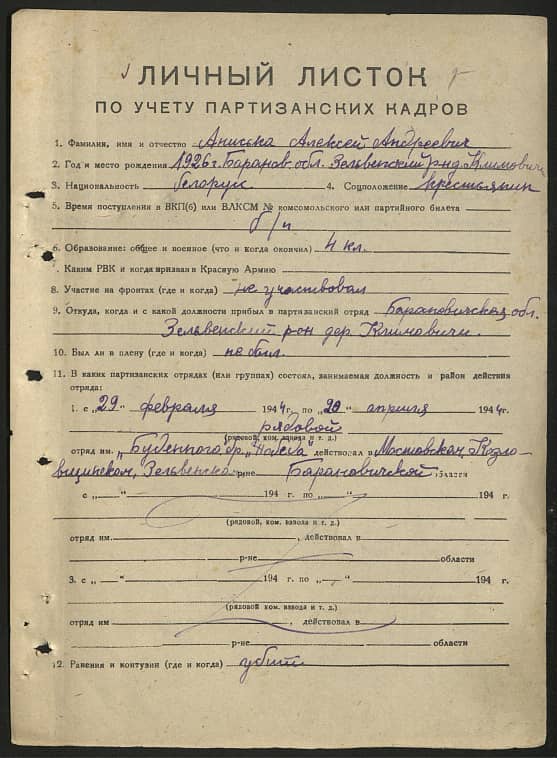 ЛИЧНЫЙ ЛИСТОК
ПО УЧЕТУ ПАРТИЗАНСКИХ КАДРОВ
1. Фамилия, имя и отчество Аниська Алексей Андреевич
2. Год и место рождения 1926 г. Баранов. обл. Зельвенский р-н д. Климовичи
3. Национальность белорус 4. Соцположение крестьянин
5. Время поступления в ВКП(б) или ВЛКСМ № комсомольского или партийного билета
б/п
6. Образование: общее и военное (что и когда окончил) 4 кл.
7. Каким РВК и когда призван в Красную Армию
8. Участие на фронтах (где и когда) не участвовал
9. Откуда, когда и с какой должности прибыл в партизанский отряд Барановичская обл.
Зельвенский рон дер. Климовичи.
10. Был ли в плену (где и когда) не был.
11. В каких партизанских отрядах (или группах) состоял, занимаемая должность и район действия
отряда:
1. с „29" февраля 1944 г. по „20" апреля 1944 г.
рядовой
(рядовой, ком. взвода и т. д.)
отряд им. „Буденного бр. "Победа" действовал в Мостовском, Козло-
вщинском, Зельвенско р-не Барановичской области
с „ — " 194 г. по „ — " 194 г.
(рядовой, ком. взвода и т. д.)
отряд им. , действовал в
р-не области
3. с „ — " 194 г. по „ — " 194 г.
(рядовой, ком. взвода и т. д.)
отряд им , действовал в
р-не области
12. Ранения и контузии (где и когда) убит